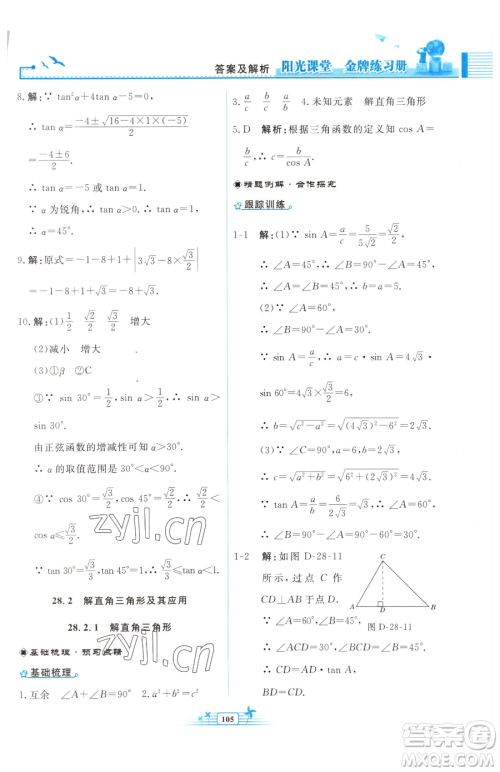 答案及解析 阳光课堂 金牌练习册
8. 解：∵ tan²α+4tan α-5=0，
∴ tan α=(-4±√(16-4×1×(-5)))/2=
(-4±6)/2.
∴ tan α=1 或 tan α=-5.
∵ α 为锐角，
∴ tan α=1.
∴ α=45°.
9. 解：原式=-1-8+1+|3√3-8×√3/2|
=-1-8+1+√3=-8+√3.
10. 解：(1) 1/2 √2/2 √3/2 增大
(2)减小 增大
(3)①β ②C
③∵ sin 30°=1/2，sin α>1/2，∴ sin α>
sin 30°.
由正弦函数的增减性可知 α>30°.
∴ α 的取值范围是 30°<α<90°.
④∵ cos 30°=√3/2，cos 45°=√2/2，∴ √2/2<
cos α<√3/2.
∵ tan 30°=√3/3，∴ √3/3<tan α<1.
28.2 解直角三角形及其应用
28.2.1 解直角三角形
基础梳理·预习点睛
基础梳理
1. 互余 ∠A+∠B=90° 2. a²+b²=c²
3. a/c b/c a/b 4. 未知元素 解直角三角形
5. D 解析：根据三角函数的定义知 cos A=
b/c，∴ c=b/cos A.
精题例解·合作探究
跟踪训练
1-1 解：(1)∵ sin A=a/c=5/(5√2)=√2/2，
∴ ∠A=45°，∠B=90°-∠A=45°.
∴ ∠A=∠B=45°. ∴ b=a=5.
(2)∵ ∠A=60°，
∴ ∠B=90°-∠A=30°.
∵ sin A=a/c，∴ a=c·sin A=4√3×
sin 60°=4√3×√3/2=6.
∴ b=√(c²-a²)=√((4√3)²-6²)=2√3.
(3)∴ c=√(a²+b²)=√(6²+(2√3)²)=4√3.
∵ tan A=a/b=6/(2√3)=√3，∴ ∠A=60°.
∴ ∠B=90°-∠A=30°.
1-2 解：如图 D-28-11
所示，过点 C 作
CD⊥AB 于点 D，
∴ ∠ADC=
∠BDC=90°.
C
A D B
图 D-28-11
zyjl.cn
zyjl.cn
105